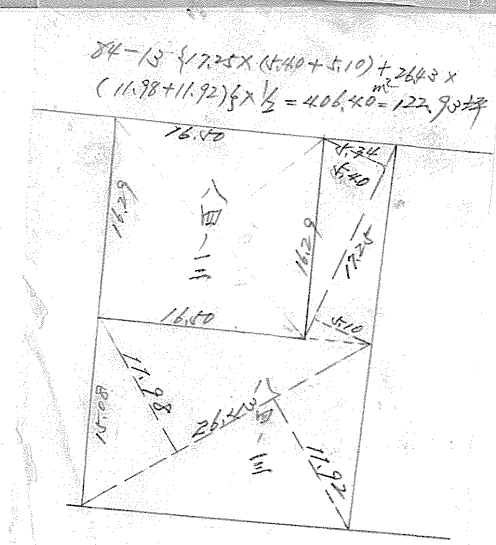 84-13 {17.25×(5.40+5.10)+26.43×
(11.98+11.92)}×1/2=406.40m²=122.93坪
16.50
5.34
5.40
16.29
八四-二
16.29
17.25
16.50
5.10
11.98
15.08
26.43
八四-一三
11.92